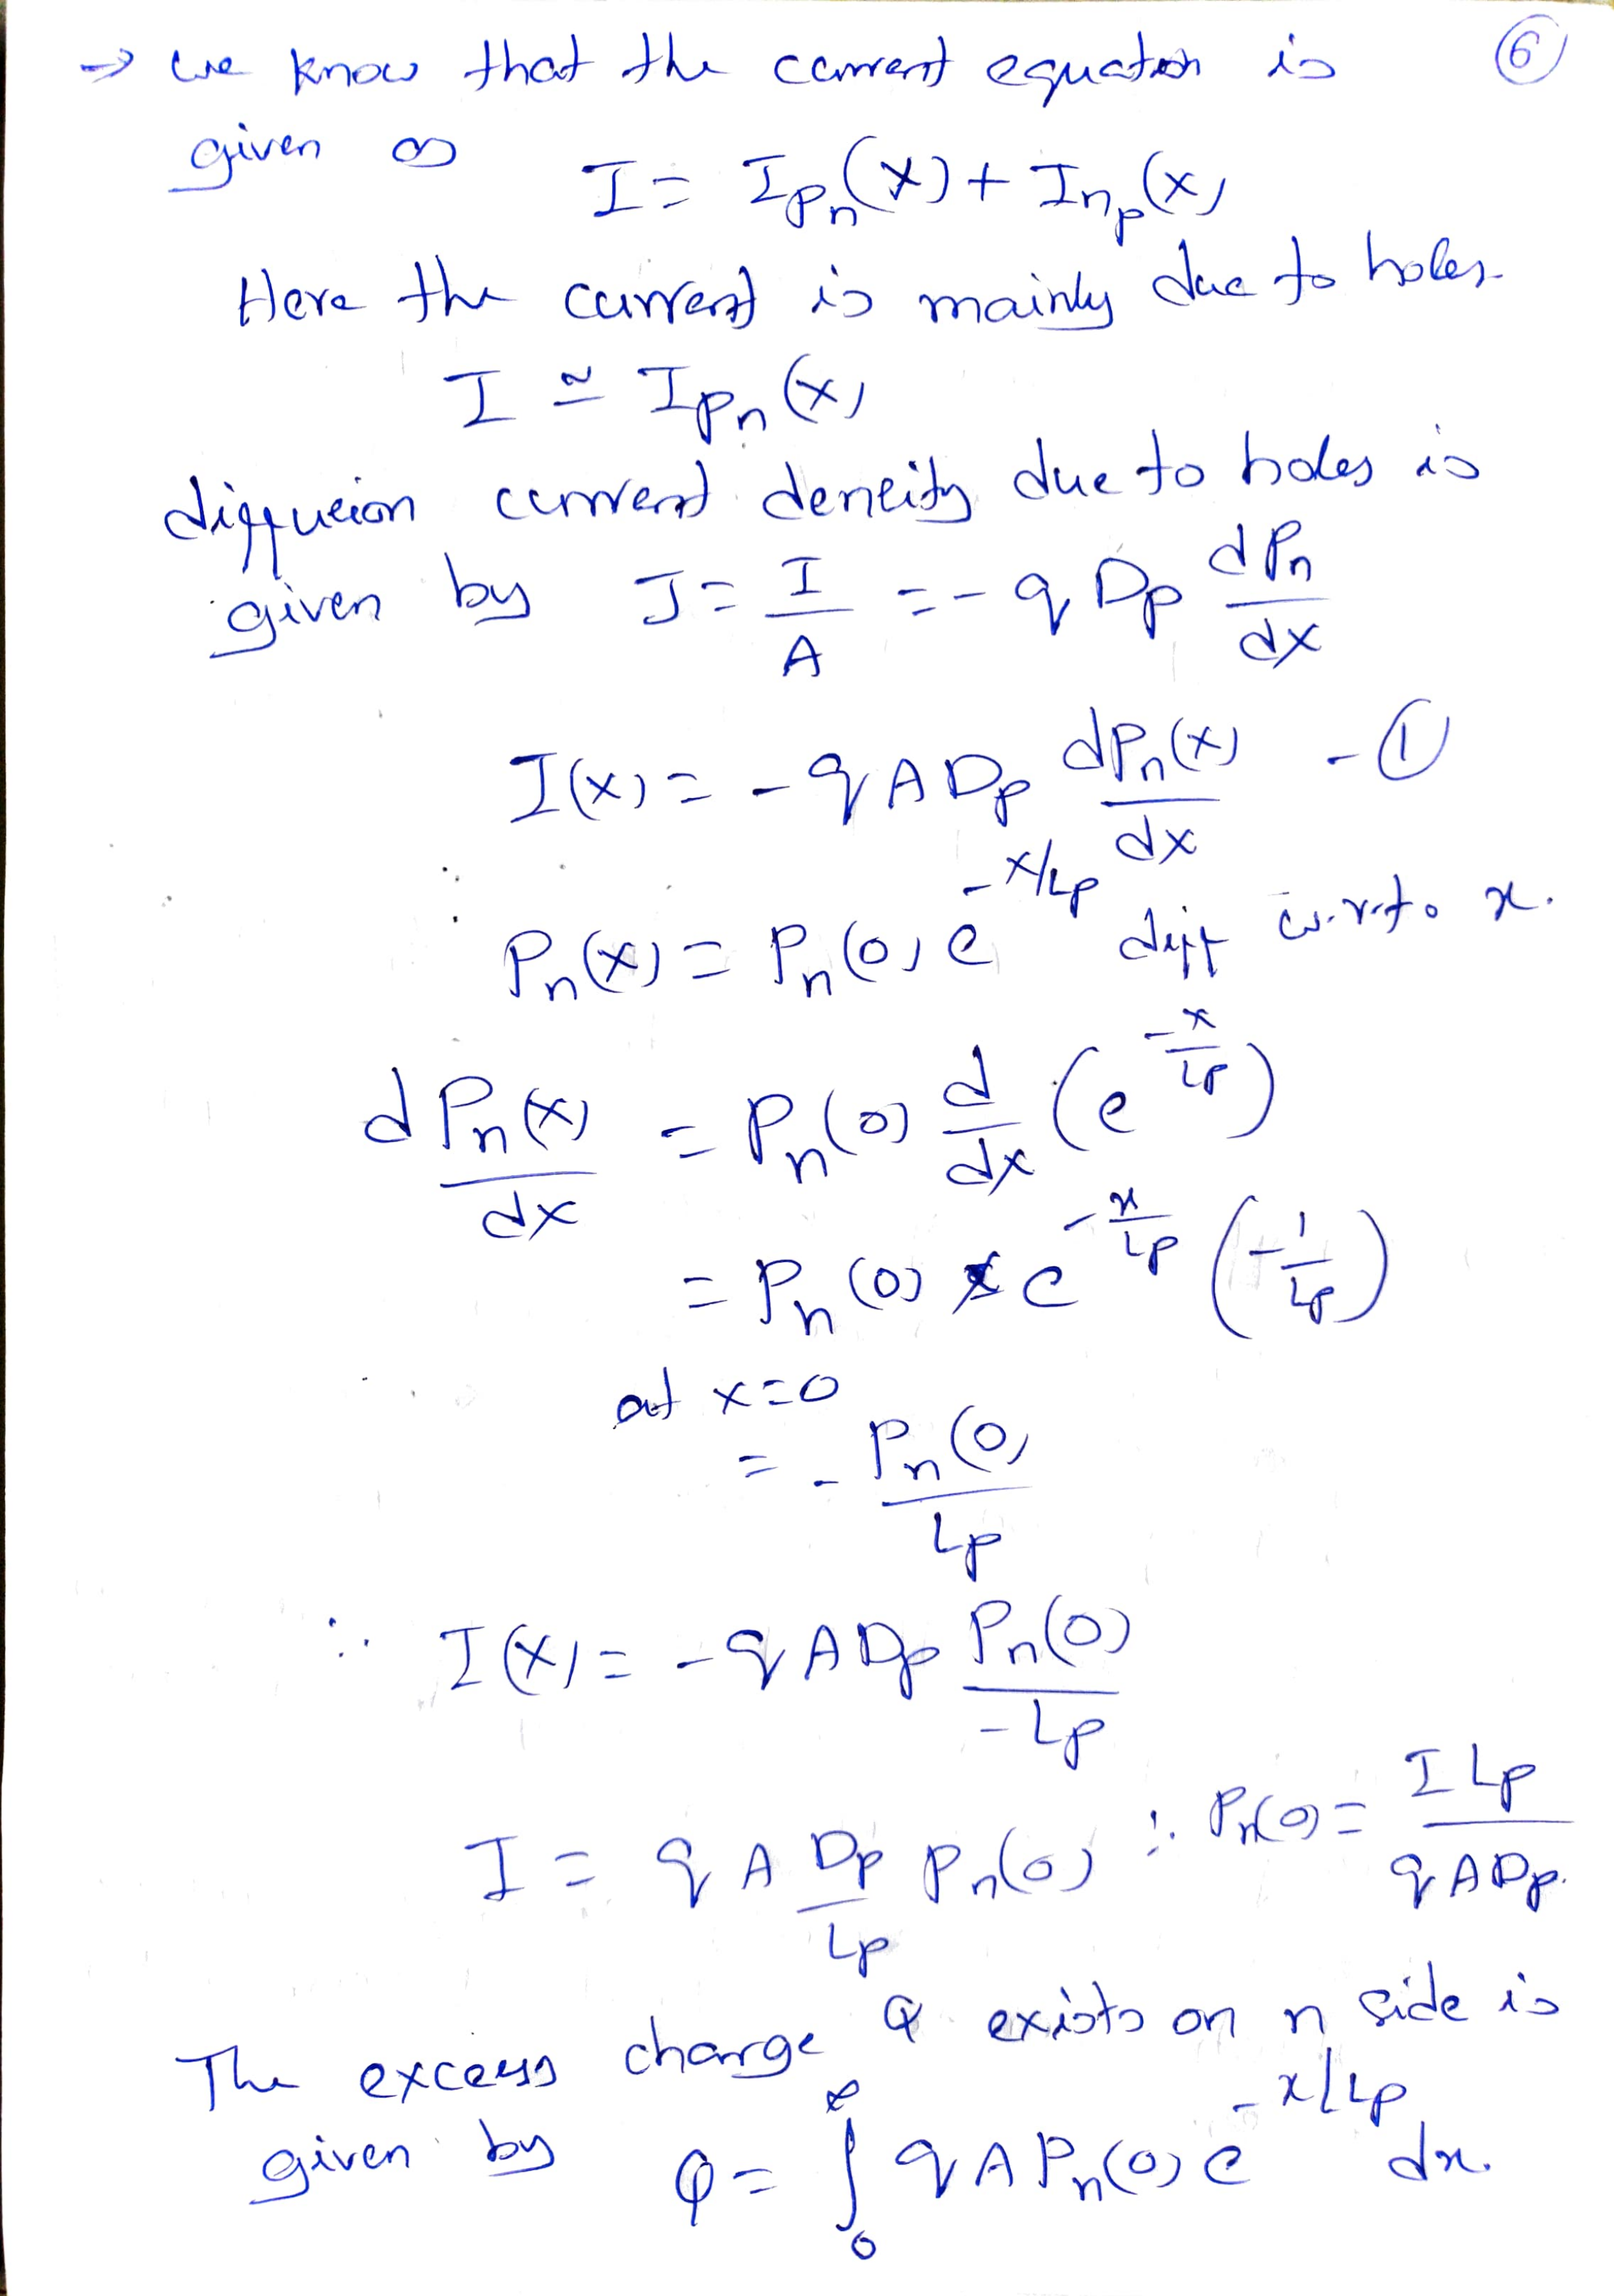 → we know that the current equation is ⑥
given as
I = Ipn(x) + Inp(x)
Here the current is mainly due to holes.
I ≃ Ipn(x)
diffusion current density due to holes is
given by J = I/A = - q Dp dPn/dx
I(x) = - q A Dp dPn(x)/dx - ①
∴ Pn(x) = Pn(0) e^-x/Lp diff w.r.to x.
dPn(x)/dx = Pn(0) d/dx (e^-x/Lp)
= Pn(0) e^-x/Lp (-1/Lp)
at x=0
= - Pn(0)/Lp
∴ I(x) = - q A Dp Pn(0)/-Lp
I = q A Dp/Lp Pn(0) ∴ Pn(0) = I Lp/q A Dp.
The excess charge Q exists on n side is
given by Q = ∫0^∞ q A Pn(0) e^-x/Lp dx.